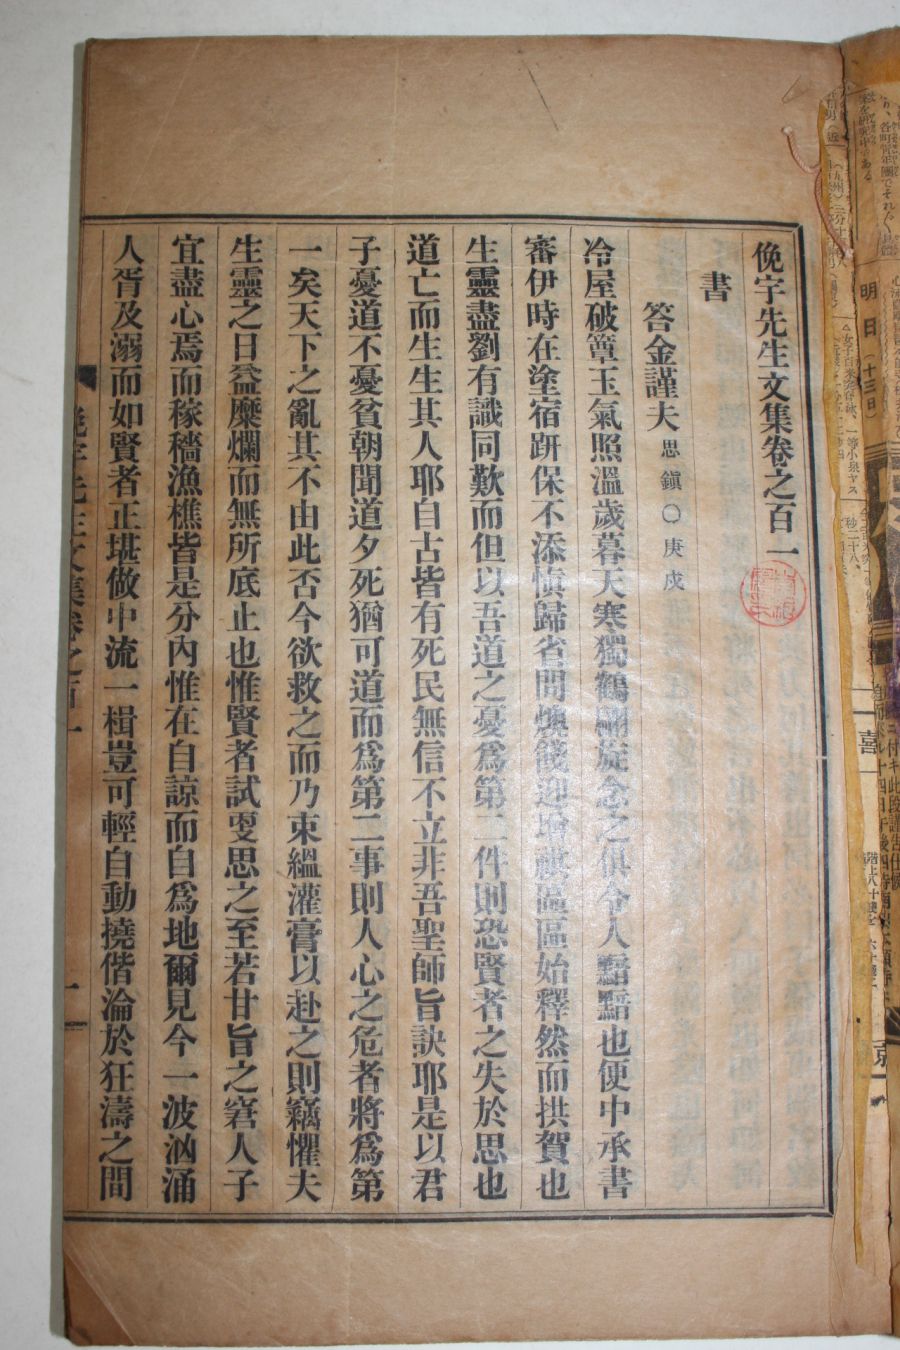 俛宇先生文集卷之百一
書
答金謹夫 思鎭○庚戌
冷屋破簟玉氣照溫歲暮天寒獨鶴翩旋念之俱令人黯黯也便中承書
審伊時在塗宿趼保不添愼歸省間煥餞迎增祺區區始釋然而拱賀也
生靈盡劉有識同歎而但以吾道之憂爲第二件則恐賢者之失於思也
道亡而生生其人耶自古皆有死民無信不立非吾聖師旨訣耶是以君
子憂道不憂貧朝聞道夕死猶可道而爲第二事則人心之危者將爲第
一矣天下之亂其不由此否今欲救之而乃束縕灌膏以赴之則竊懼夫
生靈之日益糜爛而無所底止也惟賢者試更思之至若甘旨之窘人子
宜盡心焉而稼穡漁樵皆是分內惟在自諒而自爲地爾見今一波汹涌
人胥及溺而如賢者正堪做中流一楫豈可輕自動撓偕淪於狂濤之間
俛宇先生文集卷之百一
一
明日(十三日)
喜